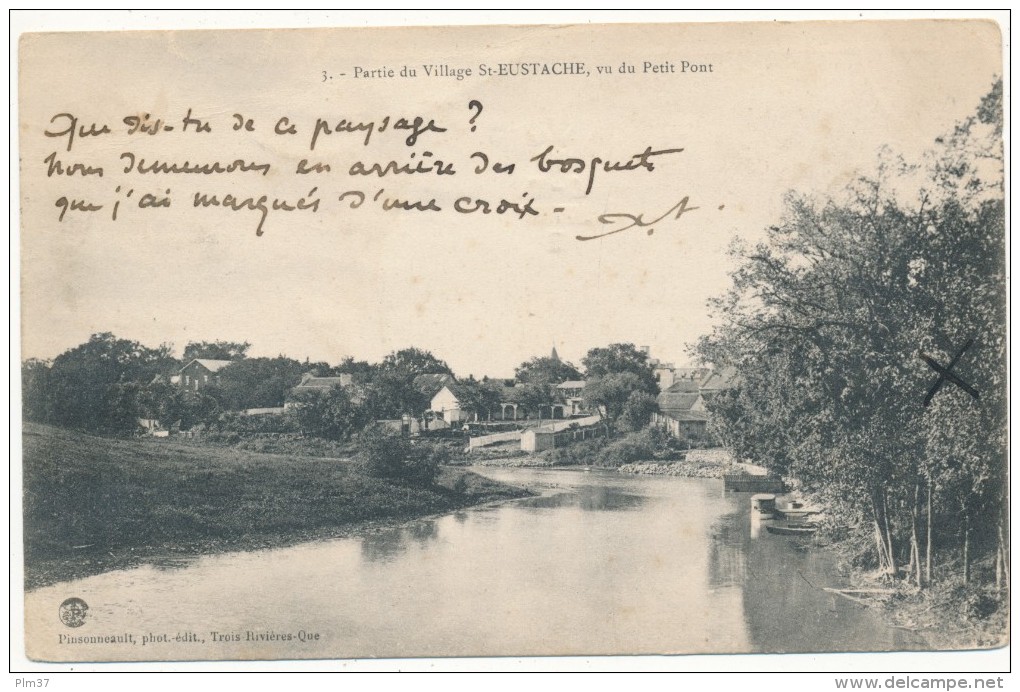 3. - Partie du Village St-EUSTACHE, vu du Petit Pont
Que dis-tu de ce paysage ?
Nous demeurons en arrière des bosquets
que j'ai marqués d'une croix -
Pinsonneault, phot.-édit., Trois Rivières-Que
Plm37
www.delcampe.net